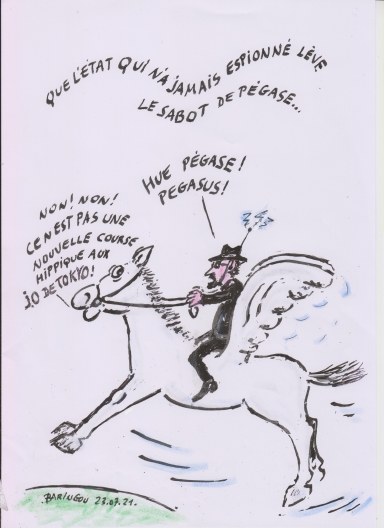 QUE L'ÉTAT QUI N'A JAMAIS ESPIONNÉ LÈVE
LE SABOT DE PÉGASE...
HUE PÉGASE!
PEGASUS!
NON! NON!
CE N'EST PAS UNE
NOUVELLE COURSE
HIPPIQUE AUX
J.O DE TOKYO!
BARIUGOU 23.07.21.